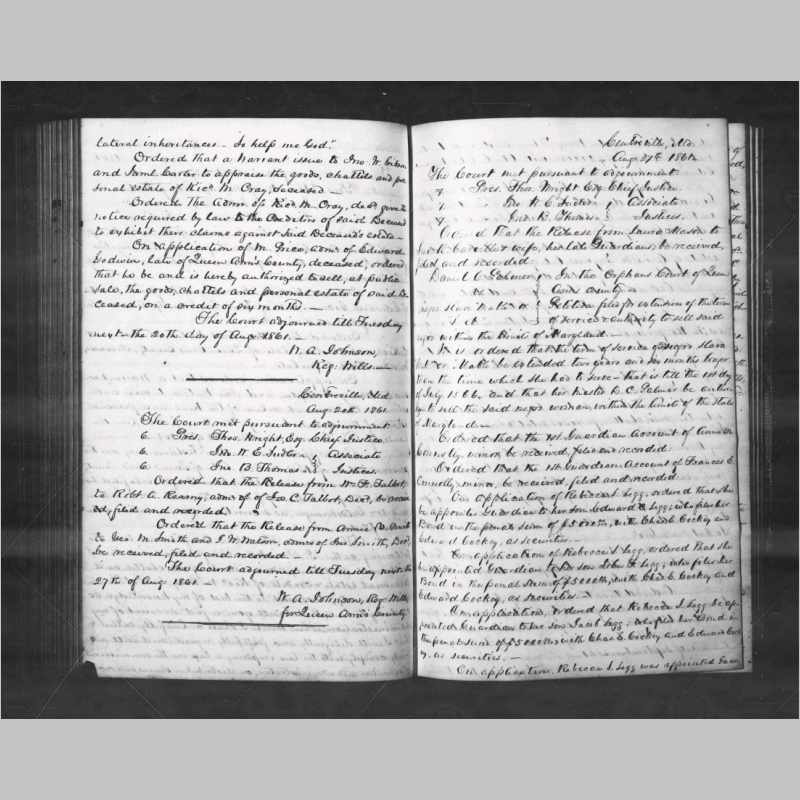 lateral inheritances - So help me God."
Ordered that a warrant issue to Jno. W.
and Saml. Carter to appraise the goods, chattels and per
sonal estate of Ricd. M. Cray, deceased -
Ordered The Admr. of Ricd. M. Cray, decd., give the
notice required by law to the Creditors of said Deceased
to exhibit their claims against said Deceased's estate -
On application of M. Price, admr. of Edward
Godwin, law of Queen Ann's County, deceased; ordered
that he be and is hereby authorized to sell, at public
sale, the goods, chattels and personal estate of said De
ceased, on a credit of six months. -
The Court adjourned till Tuesday
next the 20th day of Aug. 1861. -
W. A. Johnson,
Reg. Wills -
Centreville, Md.
Aug. 20th 1861.
The Court met pursuant to adjournment
6. Pres. Thos. Wright, Esq. Chief Justice
6. Jno. W. E. Sudler } Associate
6. Jno. B. Thomas } Justices.
Ordered that the Release from Wm. F. Talbot,
to Robt. A. admr. of Jos. C. Talbot, Decd., be receiv
ed, filed and recorded.
Ordered that the Release from Annie
to Geo. M. Smith and J. W. admrs. of Jno. Smith, Decd.,
be received, filed and recorded. -
The Court adjourned till Tuesday next the
27th of Aug. 1861 -
W. A. Johnson, Reg. Wills
for Queen Ann's County
Centreville, Md.
Aug. 27th 1861.
The Court met pursuant to adjournment
7. Pres. Thos. Wright Esq. Chief Justice
7. Jno. W. E. Sudler } Associate
7. Jno. B. Thomas } Justices.
Ordered that the Release from Laura Mason to
wife, her late Guardians, be received,
filed and recorded.
Daniel C. } In the Orphans Court of Queen
Ann's County.
negro slave } Petition filed for extension of the term
of service & authority to sell said
negro within the limits of Maryland. -
It is ordered that the term of service of negro slave
be extended two years and six months longer
than the time which she has to serve - that is till the 1st day
of July 1866, and that her Master D. C. Palmer be author
ized to sell the said negro woman, within the limits of the State
of Maryland. -
Ordered that the 1st. Guardian Account of
Connolly, minor, be received, filed and recorded.
Ordered that the 1st. Guardian Account of Frances E.
Connolly, minor, be received, filed and recorded.
On application of Rebecca I. Legg, ordered that she
be appointed Guardian to her son Edward Legg; who files her
Bond in the penal sum of $5000, with Chas. E. Cockey and
Edward Cockey, as securities. -
On application of Rebecca I. Legg, ordered that she
be appointed Guardian to her son John F. Legg; who files her
Bond in the penal sum of $5000, with Chas. E. Cockey and
Edward Cockey, as securities. -
On application, ordered that Rebecca I. Legg be ap
pointed Guardian to her son Jacob Legg; who files her Bond in
the penal sum of $5000 with Chas. E. Cockey and Edward Cock
ey, as securities. -
On application, Rebecca I. Legg was appointed Guar